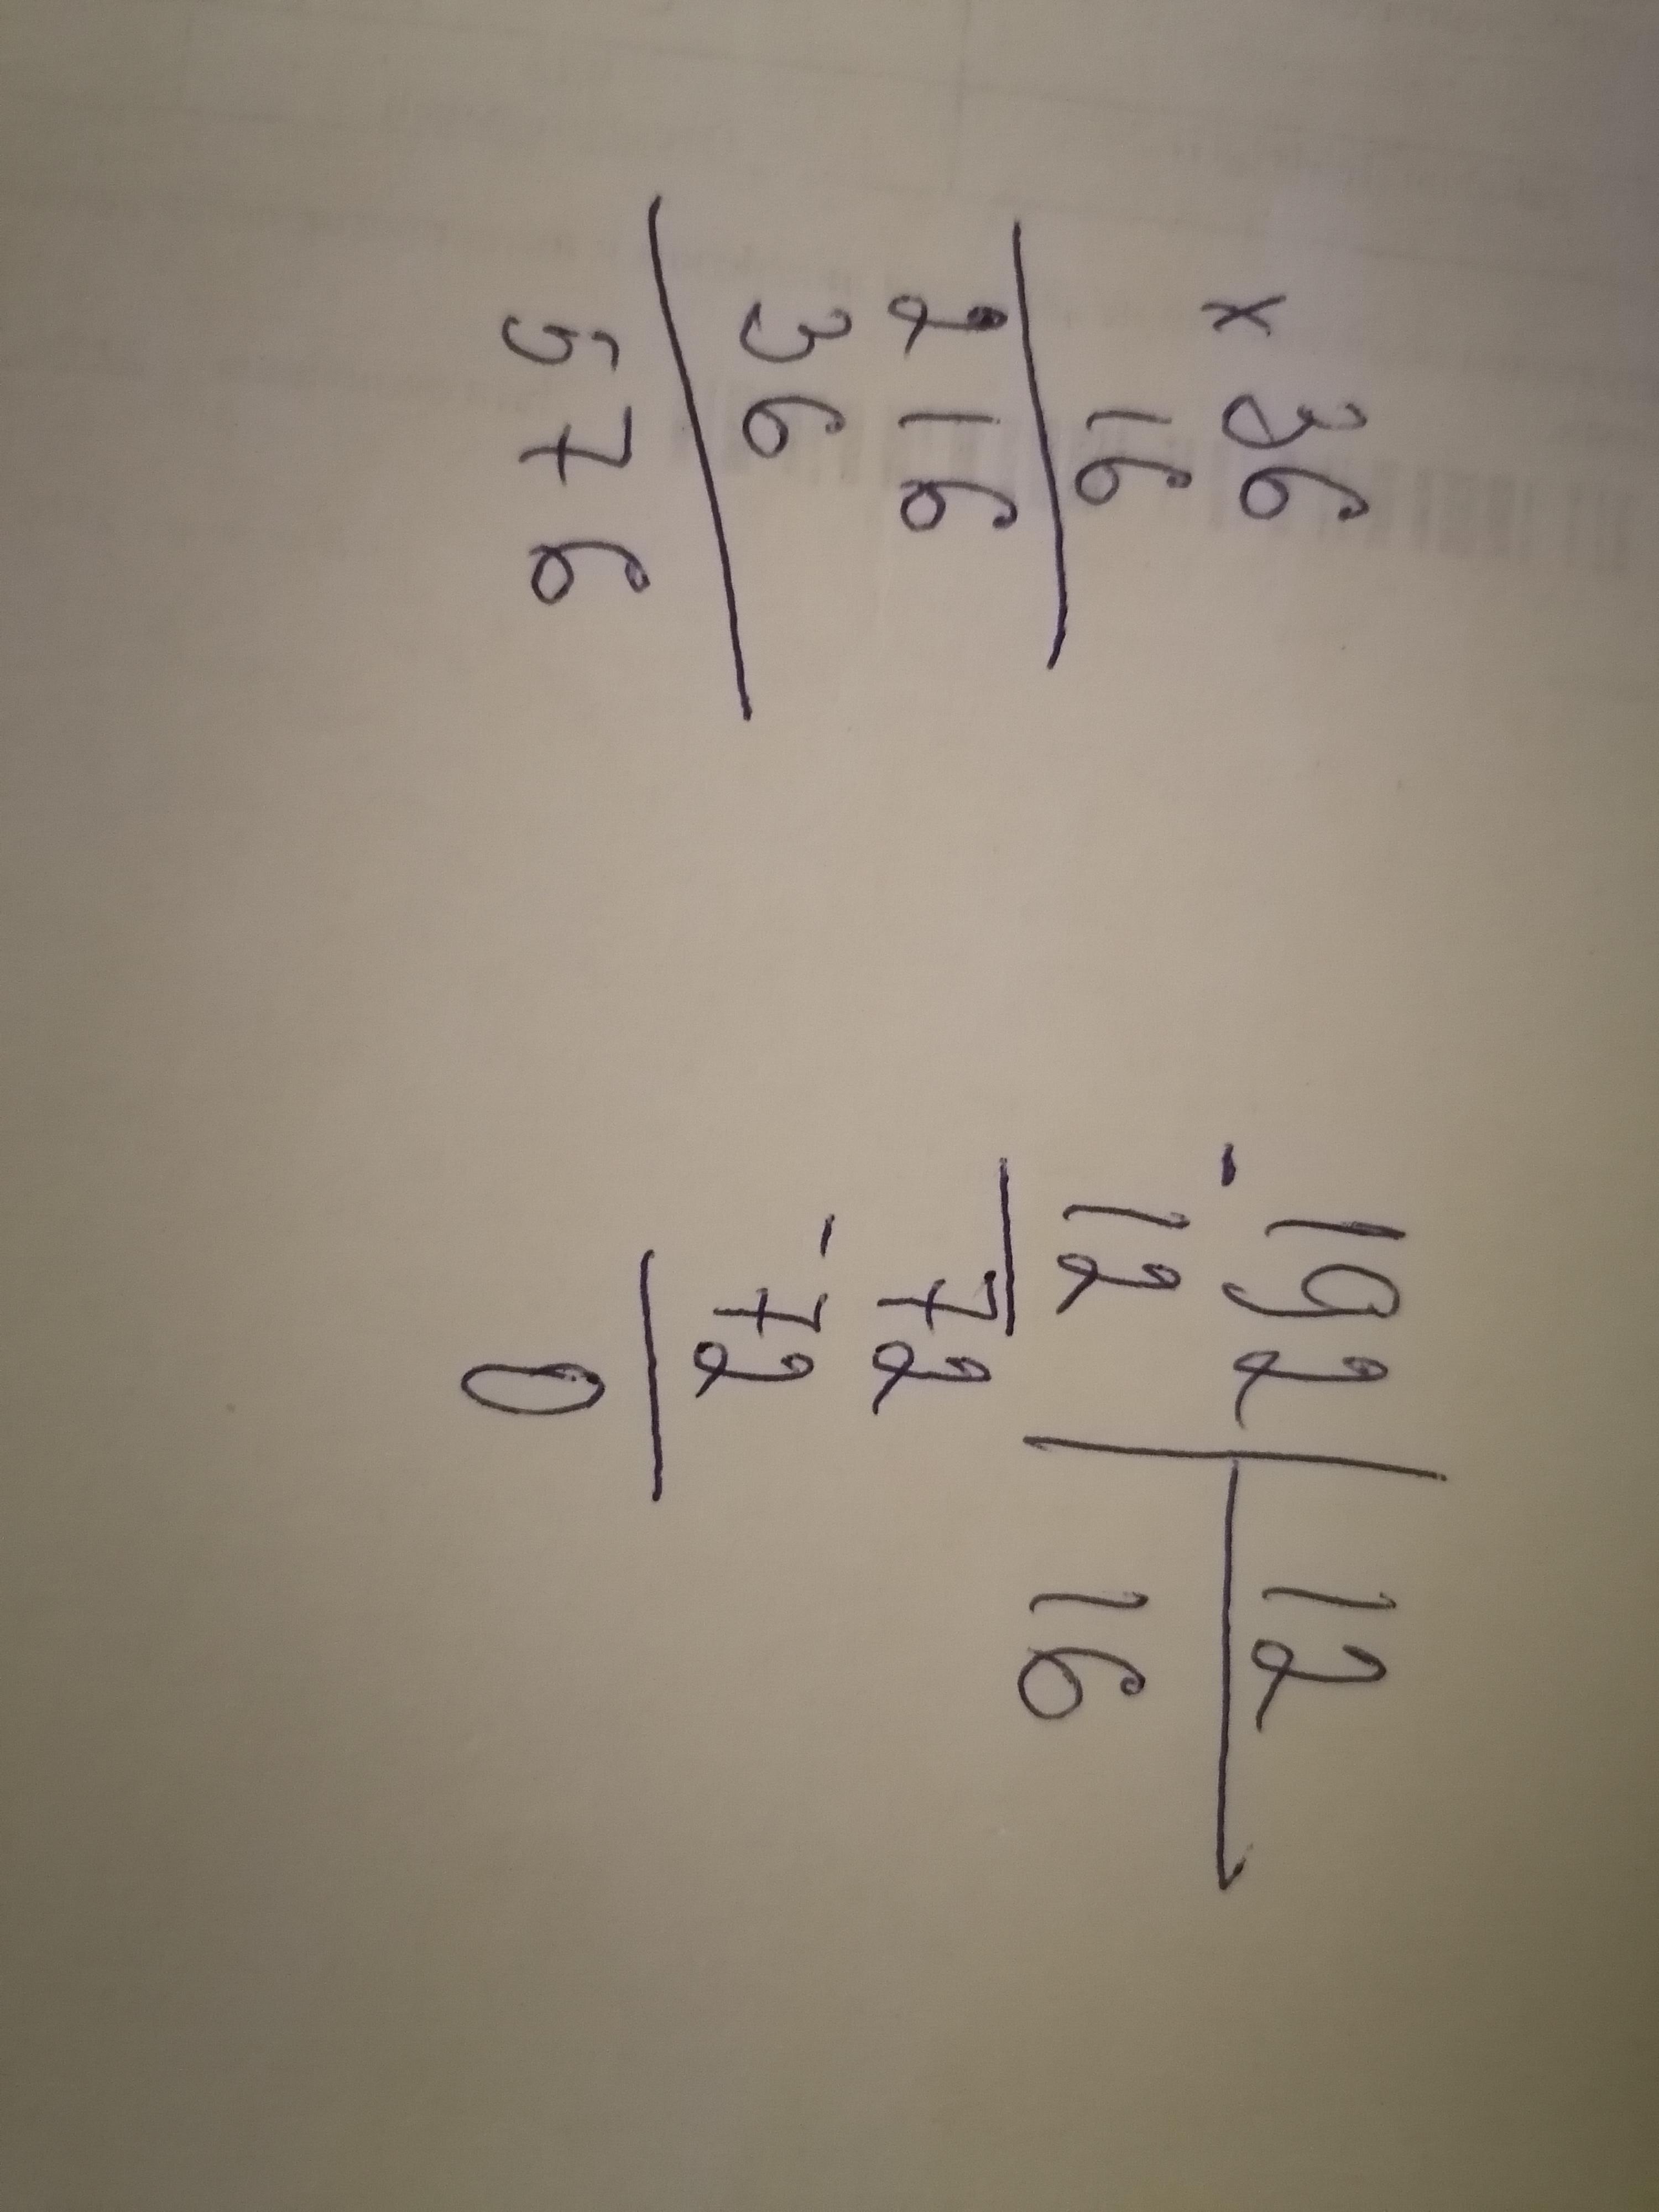 x 36
16
216
36
576
- 192 | 12
12 16
72
- 72
0